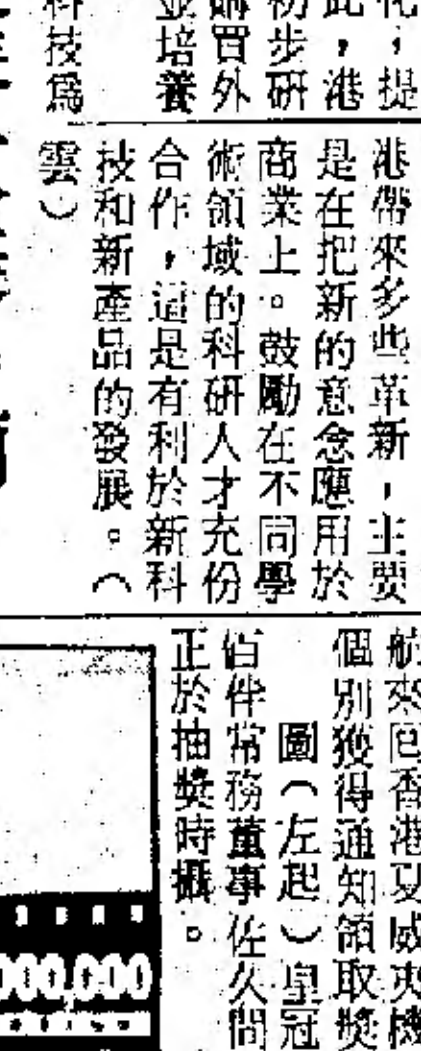 化，提
此，港
初步研
購買外
並培養
科技爲
港帶來多些革新，主要
是在把新的意念應用於
商業上。鼓勵在不同學
術領域的科研人才充份
合作，這是有利於新科
技和新產品的發展。（
雲）
航來回香港夏威夷機
個別獲得通知領取獎
圖（左起）皇冠
伯伴常務董事佐久間
正於抽獎時攝。
000,000